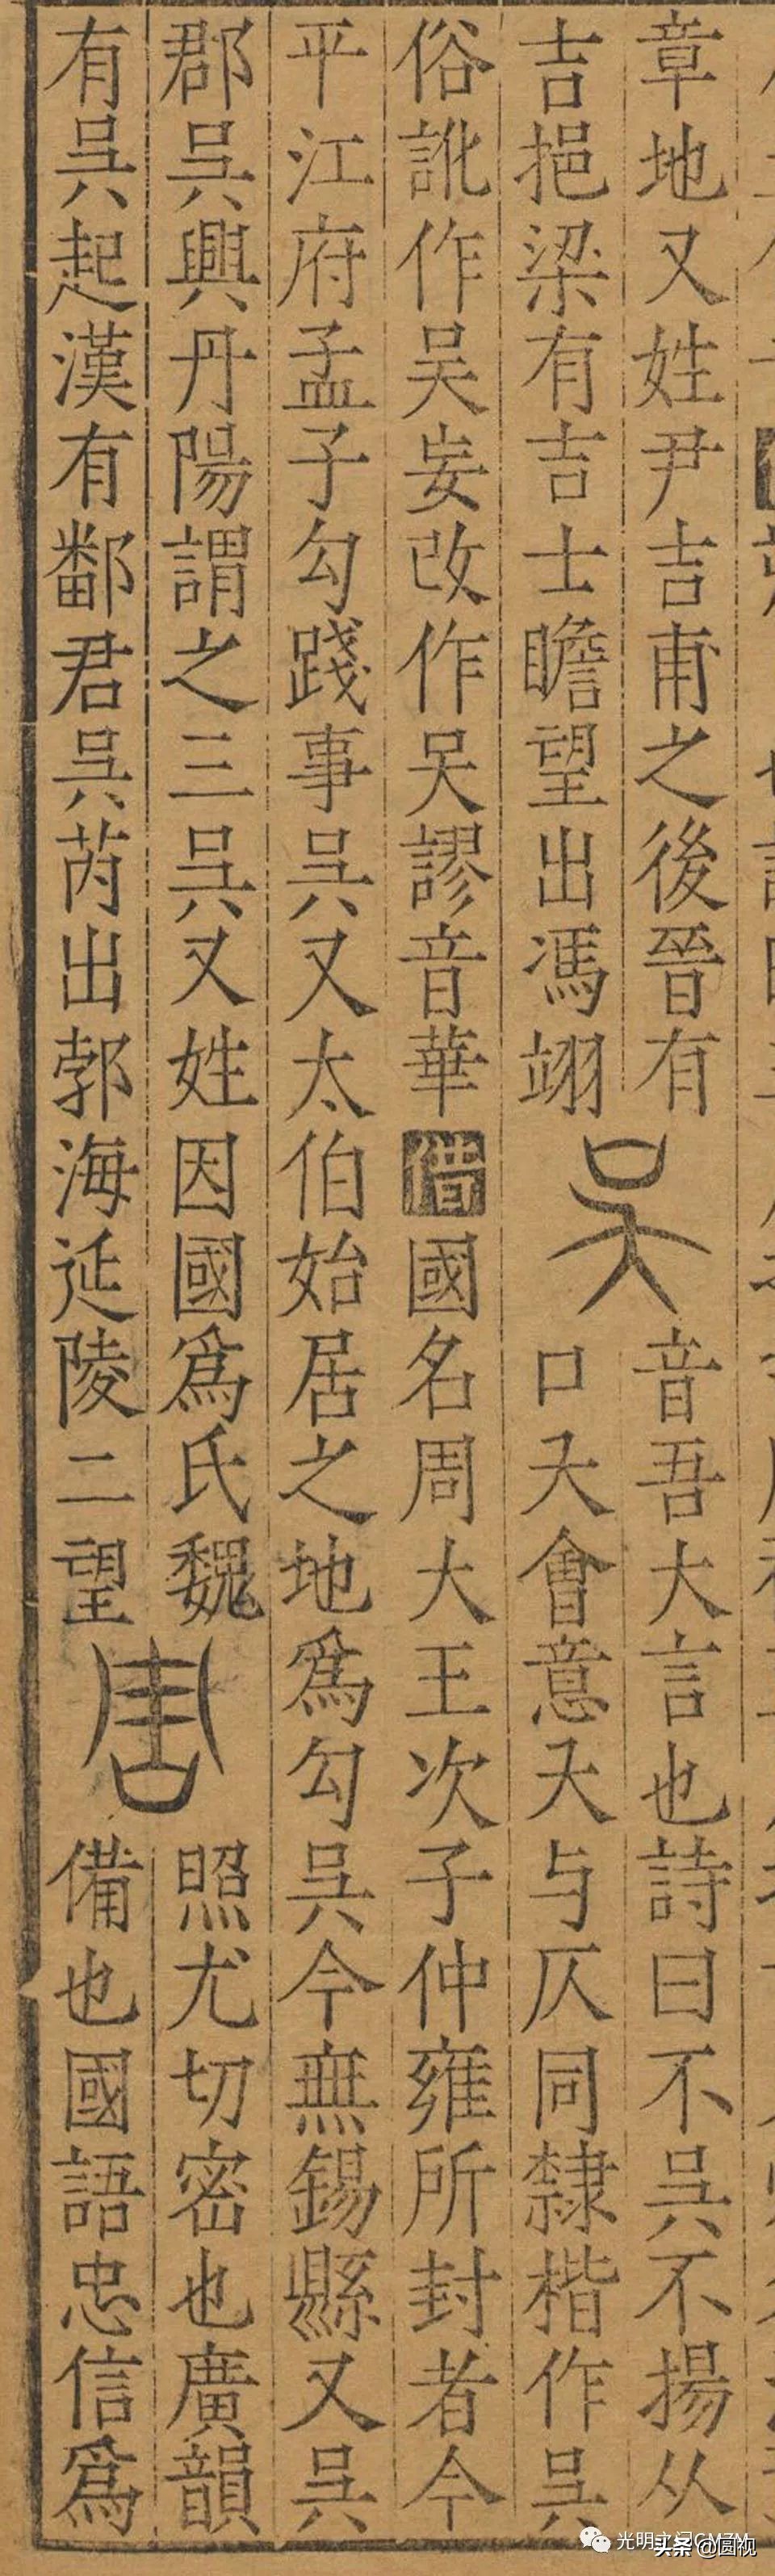 章地又姓尹吉甫之後晉有
吉挹梁有吉士瞻望出馮翊
吳
音吾大言也詩曰不吳不揚从
口夨會意夨与仄同隸楷作吳
俗訛作吴妄改作㕦謬音華借國名周大王次子仲雍所封者今
平江府孟子勾踐事吳又太伯始居之地爲勾吳今無錫縣又吳
郡吳興丹陽謂之三吳又姓因國爲氏魏
有吳起漢有鄱君吳芮出郣海延陵二望
周
照尤切密也廣韻
備也國語忠信爲
头条 @圆视